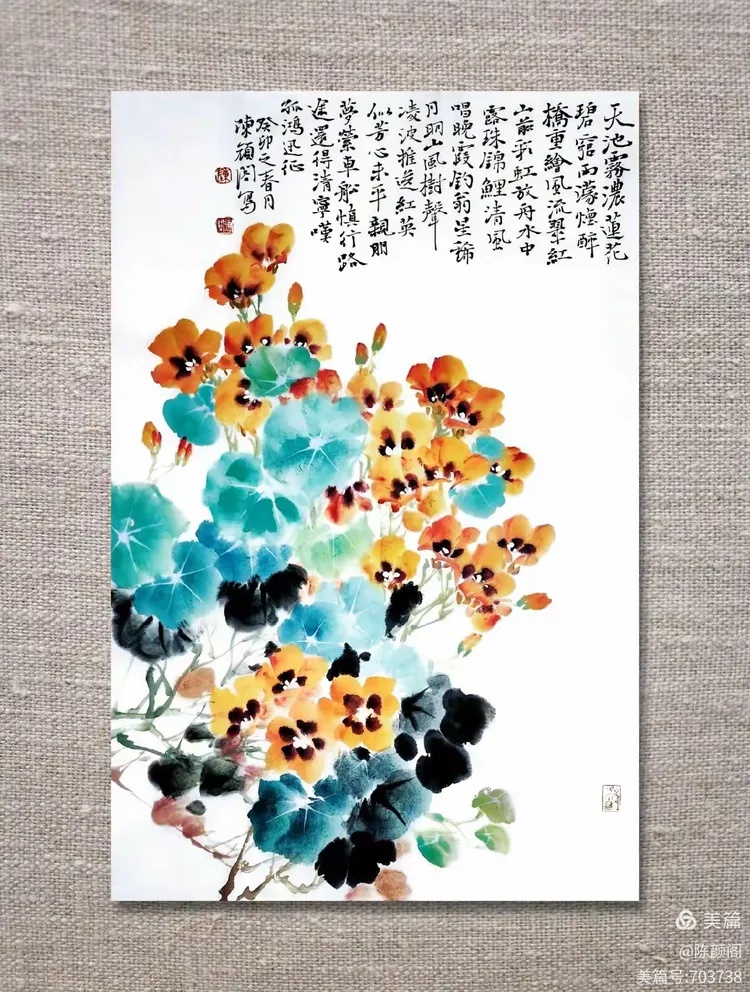 天池雾濃蓮花
碧宿雨濛煙醉
橋重繪風流翠紅
山前彩虹放舟水中
露珠錦鯉清風
唱晚霞釣翁垂綈
月明山風樹聲
凌波推送紅英
似苦心未平親朋
夢縈車船慎行路
途還得清寧嘆
孤鴻迅征
癸卯之春月
陳顏閣写
美篇
@陈颜阁
美篇号:703738